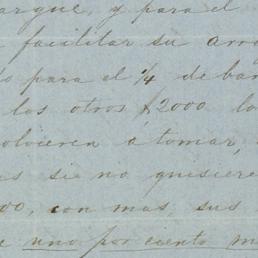 argue, y para el
facilitar su arr
o para el 1/4 de bar
los otros $2000 lo
olvieren a tomar,
es si no quisiere
00, con mas, sus
e uno por ciento m